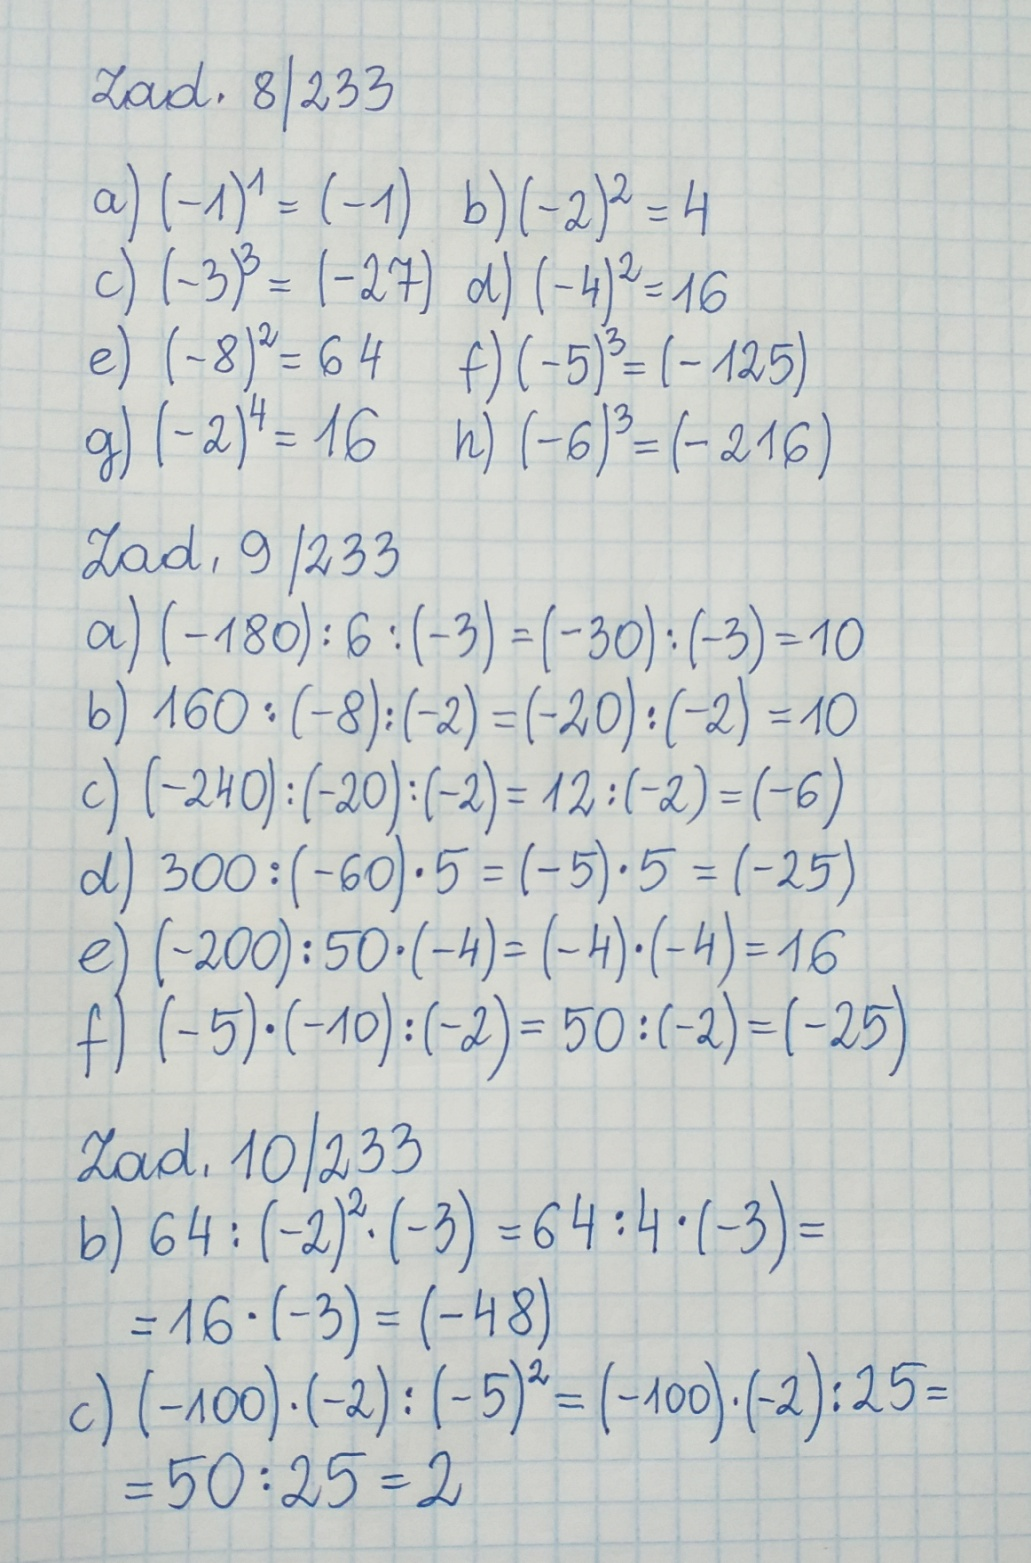 Zad. 8/233
a) (-1)¹ = (-1) b) (-2)² = 4
c) (-3)³ = (-27) d) (-4)² = 16
e) (-8)² = 64 f) (-5)³ = (-125)
g) (-2)⁴ = 16 h) (-6)³ = (-216)
Zad. 9/233
a) (-180) : 6 : (-3) = (-30) : (-3) = 10
b) 160 : (-8) : (-2) = (-20) : (-2) = 10
c) (-240) : (-20) : (-2) = 12 : (-2) = (-6)
d) 300 : (-60) · 5 = (-5) · 5 = (-25)
e) (-200) : 50 · (-4) = (-4) · (-4) = 16
f) (-5) · (-10) : (-2) = 50 : (-2) = (-25)
Zad. 10/233
b) 64 : (-2)² · (-3) = 64 : 4 · (-3) =
= 16 · (-3) = (-48)
c) (-100) · (-2) : (-5)² = (-100) · (-2) : 25 =
= 50 : 25 = 2